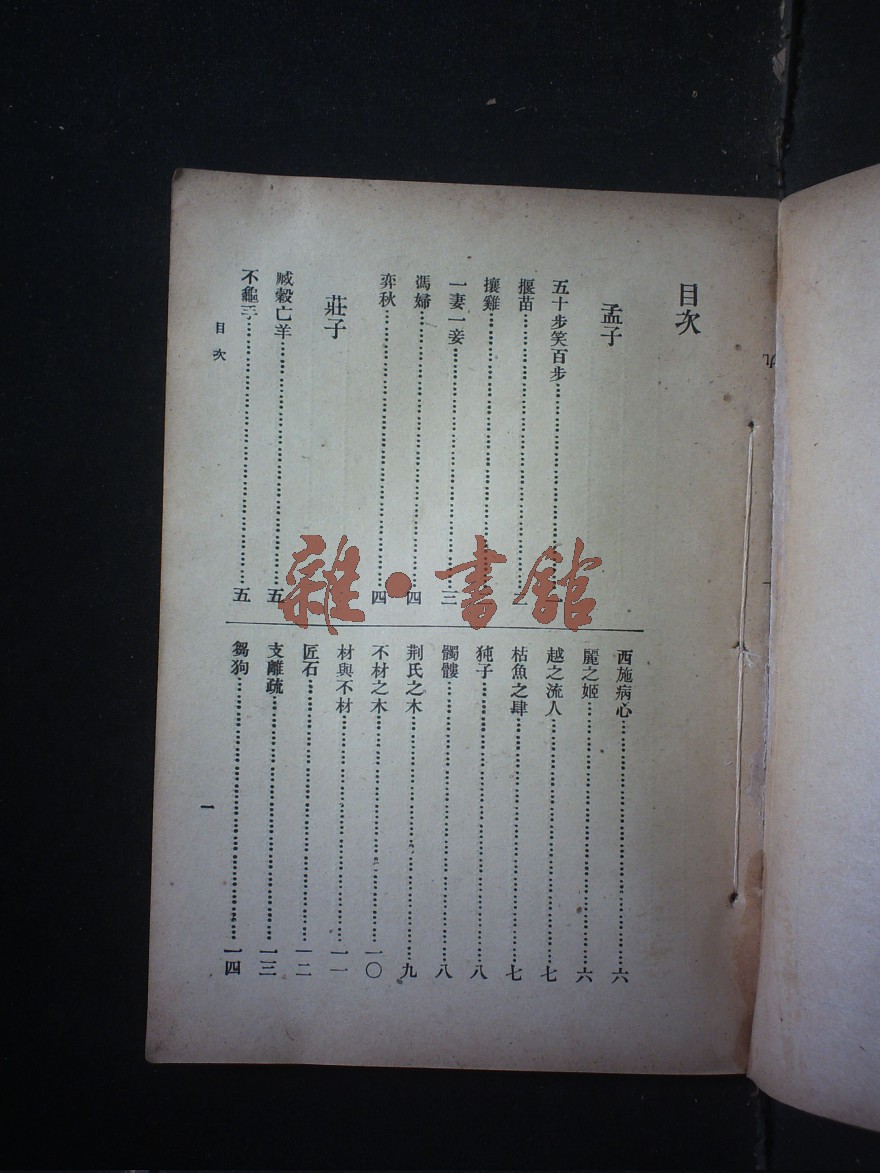 目次
孟子
五十步笑百步
揠苗………二
攘雞
一妻一妾………三
馮婦………四
弈秋………四
莊子
臧穀亡羊………五
不龜手………五
西施病心………六
麗之姬………六
越之流人………七
枯魚之肆………七
㹠子………八
髑髏………八
荆氏之木………九
不材之木………一〇
材與不材………一一
匠石………一二
支離疏………一三
芻狗………一四
目次
一
雜·書館